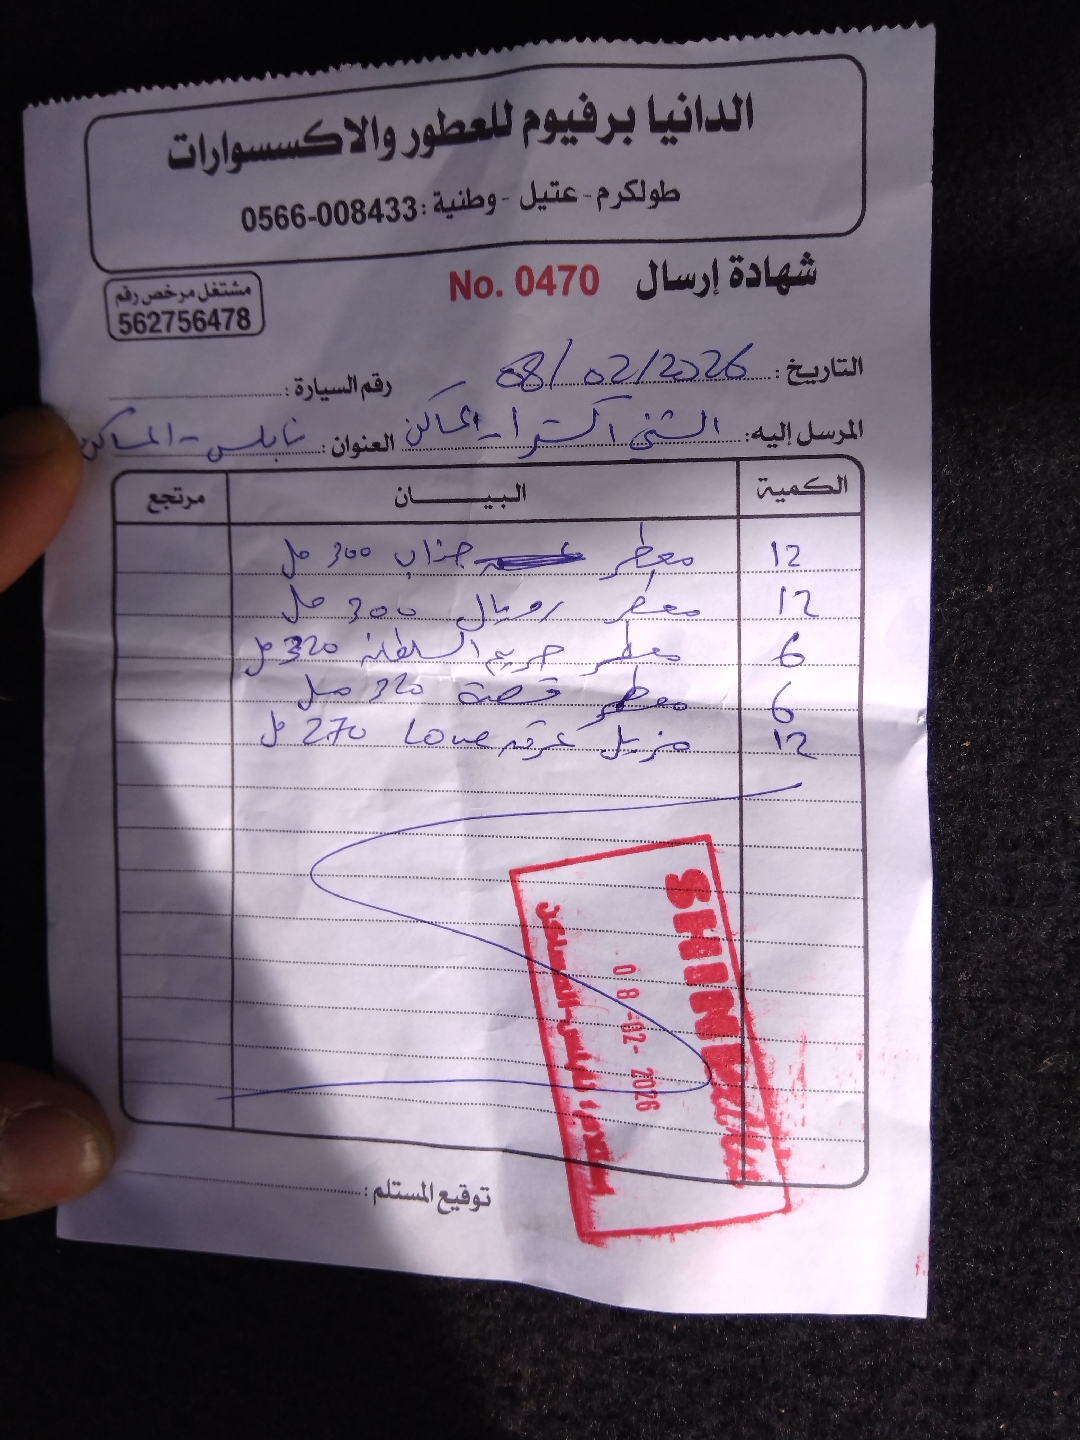 الدانيا برفيوم للعطور والاكسسوارات
طولكرم - عتيل - وطنية : 0566-008433
شهادة إرسال No. 0470
مشتغل مرخص رقم
562756478
التاريخ : 08/02/2026 رقم السيارة :
المرسل إليه: الشني اكسترا - المساكن العنوان : نابلس - المساكن
الكمية البيــــان مرتجع
12 معطر جذاب 300 مل
12 معطر رويال 300 مل
6 معطر حريم السلطان 320 مل
6 معطر قصة 320 مل
12 مزيل عرق Love 270 مل
SHINI
08-02-2026
نابلس - المساكن
توقيع المستلم :